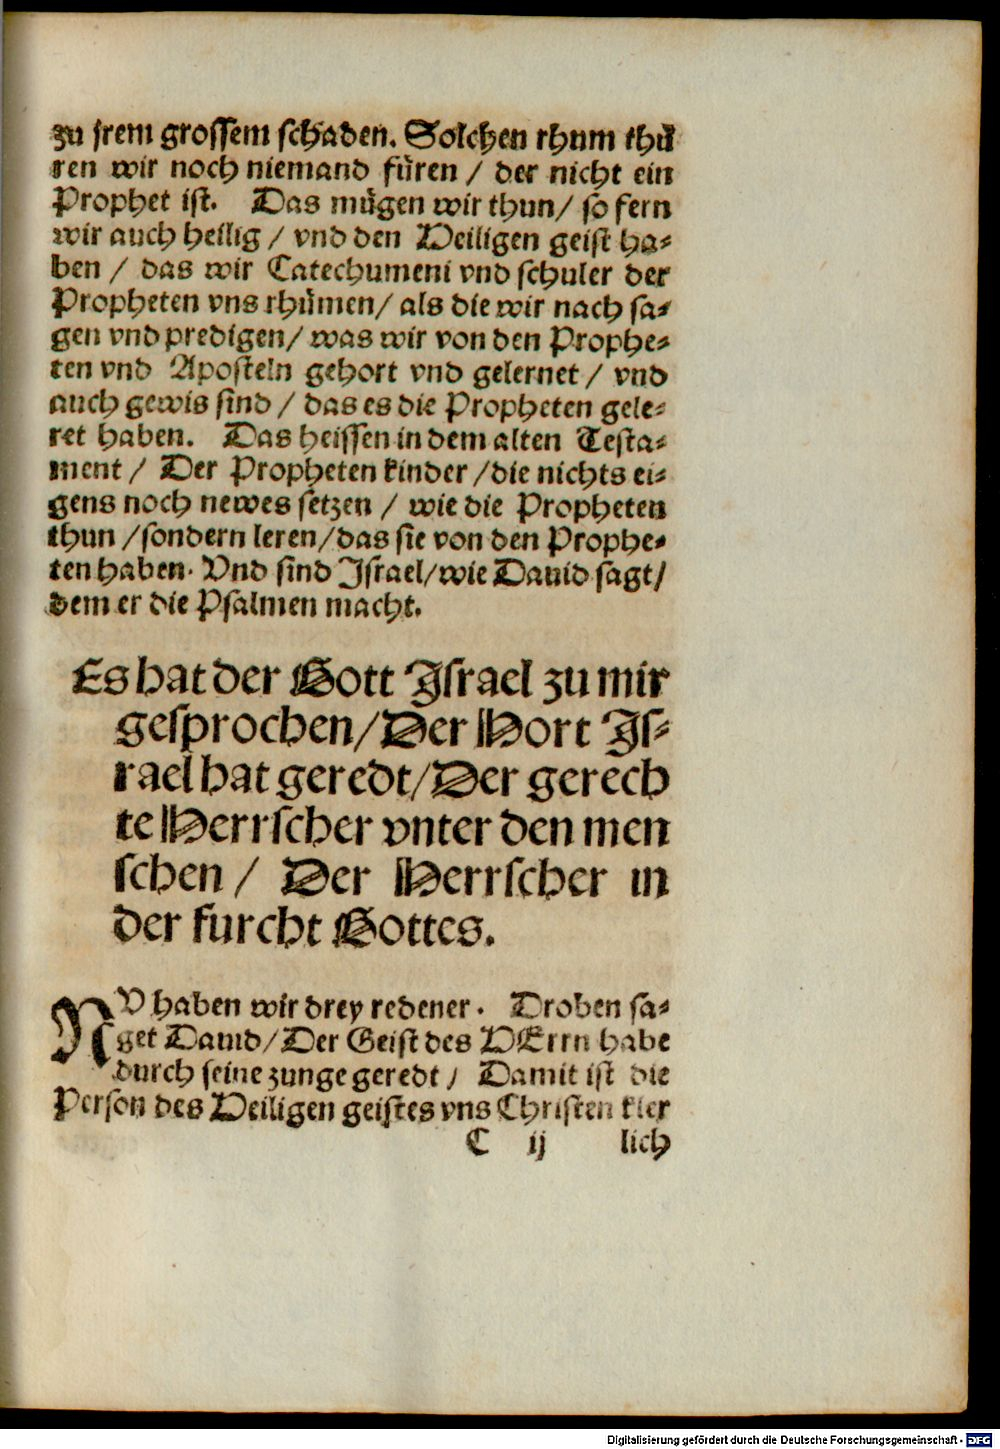 zu jrem grossem schaden. Solchen rhum thuͤ
ren wir noch niemand fuͤren / der nicht ein
Prophet ist. Das muͤgen wir thun / so fern
wir auch heilig / vnd den Heiligen geist ha⸗
ben / das wir Catechumeni vnd schuler der
Propheten vns rhuͤmen / als die wir nach sa⸗
gen vnd predigen / was wir von den Prophe⸗
ten vnd Aposteln gehort vnd gelernet / vnd
auch gewis sind / das es die Propheten gele⸗
ret haben. Das heissen in dem alten Testa⸗
ment / Der Propheten kinder / die nichts ei⸗
gens noch newes setzen / wie die Propheten
thun / sondern leren / das sie von den Prophe⸗
ten haben. Vnd sind Jsrael / wie Dauid sagt /
dem er die Psalmen macht.
Es hat der Gott Jsrael zu mir
gesprochen / Der Hort Js⸗
rael hat geredt / Der gerech
te Herrscher vnter den men
schen / Der Herrscher in
der furcht Gottes.
NV haben wir drey redener. Droben sa⸗
get Dauid / Der Geist des HErrn habe
durch seine zunge geredt / Damit ist die
Person des Heiligen geistes vns Christen kler
C ij lich
Digitalisierung gefördert durch die Deutsche Forschungsgemeinschaft - DFG